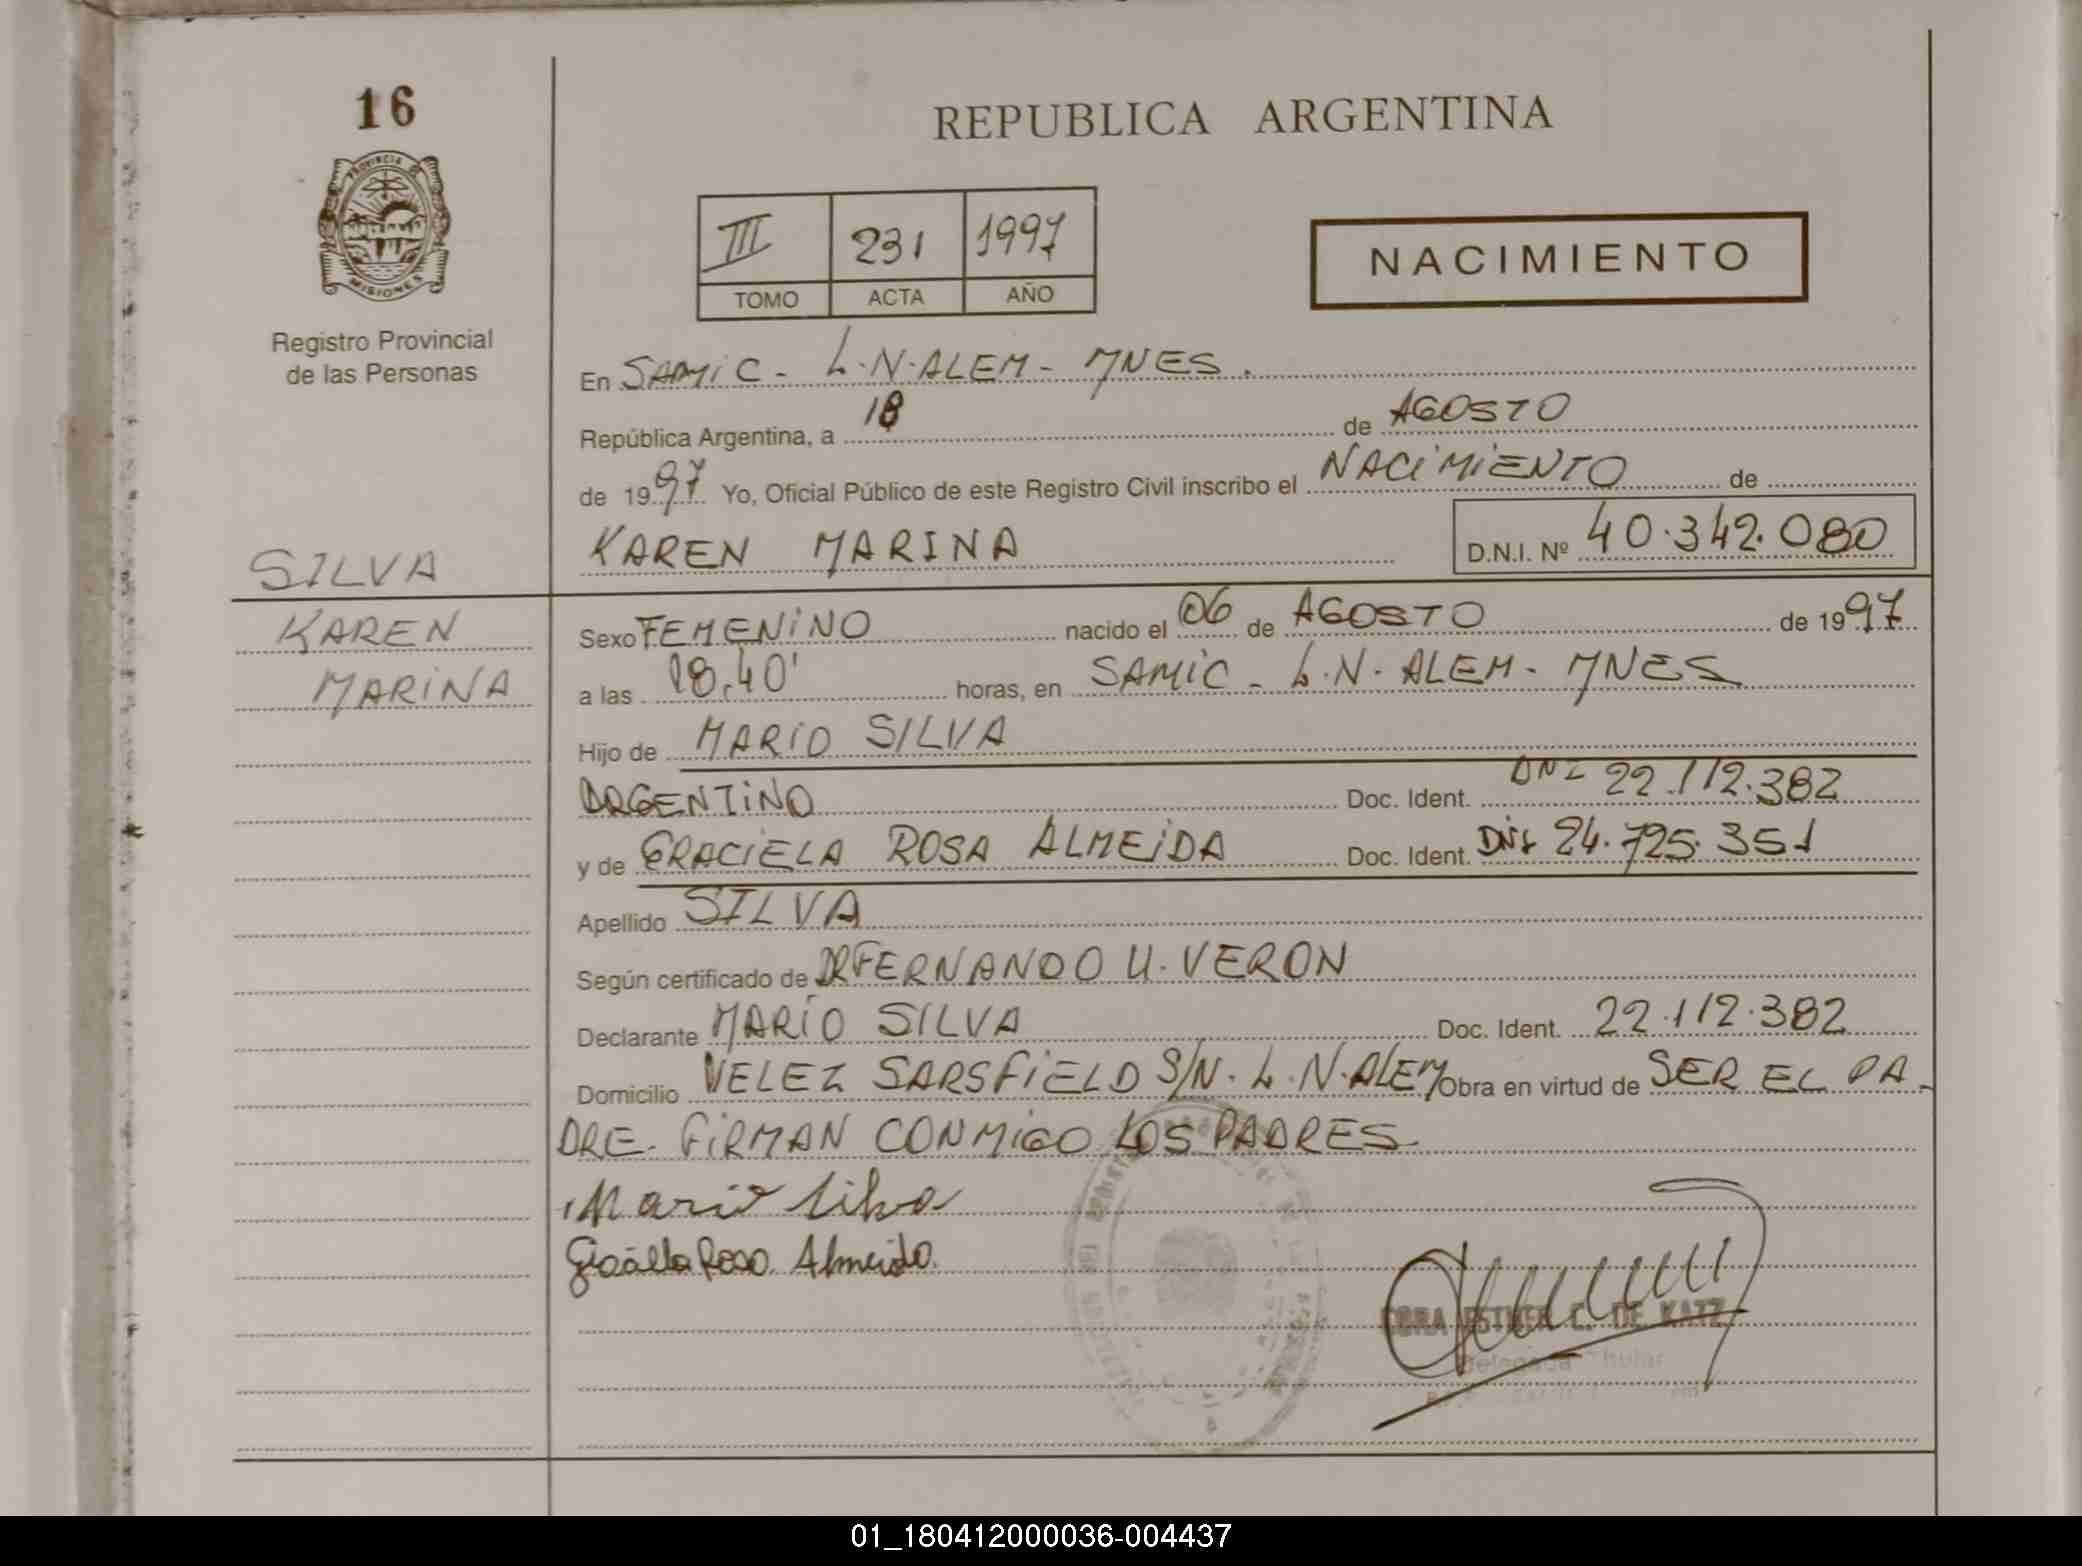 16
PROVINCIA DE
MISIONES
Registro Provincial
de las Personas
SILVA
KAREN
MARINA
REPUBLICA ARGENTINA
III 231 1997
TOMO ACTA AÑO
NACIMIENTO
En SAMIC - L.N. ALEM - MNES.
República Argentina, a 18 de AGOSTO
de 1997 Yo, Oficial Público de este Registro Civil inscribo el NACIMIENTO de
KAREN MARINA D.N.I. Nº 40.342.080
Sexo FEMENINO nacido el 06 de AGOSTO de 1997
a las 18.40' horas, en SAMIC - L.N. ALEM - MNES
Hijo de MARIO SILVA
ARGENTINO Doc. Ident. DNI 22.112.382
y de GRACIELA ROSA ALMEIDA Doc. Ident. DNI 24.725.351
Apellido SILVA
Según certificado de DR FERNANDO U. VERON
Declarante MARIO SILVA Doc. Ident. 22.112.382
Domicilio VELEZ SARSFIELD S/N. L.N. ALEM Obra en virtud de SER EL PA-
DRE. FIRMAN CONMIGO LOS PADRES.
Mario Silva
Graciela Rosa Almeida.
ESTHER C. DE KATZ
01_180412000036-004437